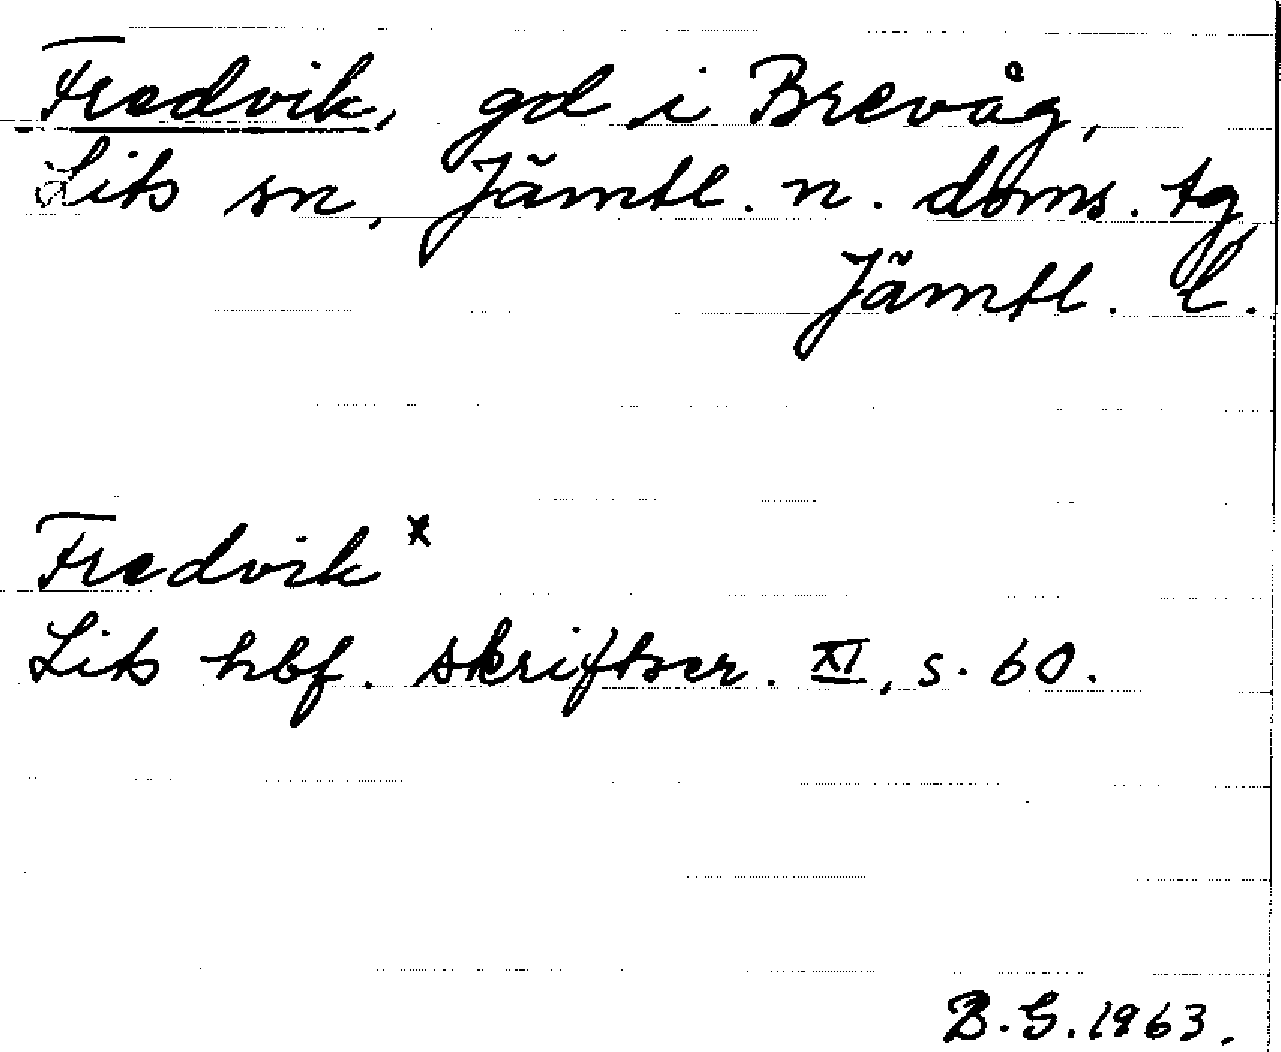 Fredvik, gd i Brevåg,
Lits sn, Jämtl. n. doms. tg
Jämtl. l.
Fredvik x
Lits hbf. skriftser. XI, s. 60.
B.G. 1963.